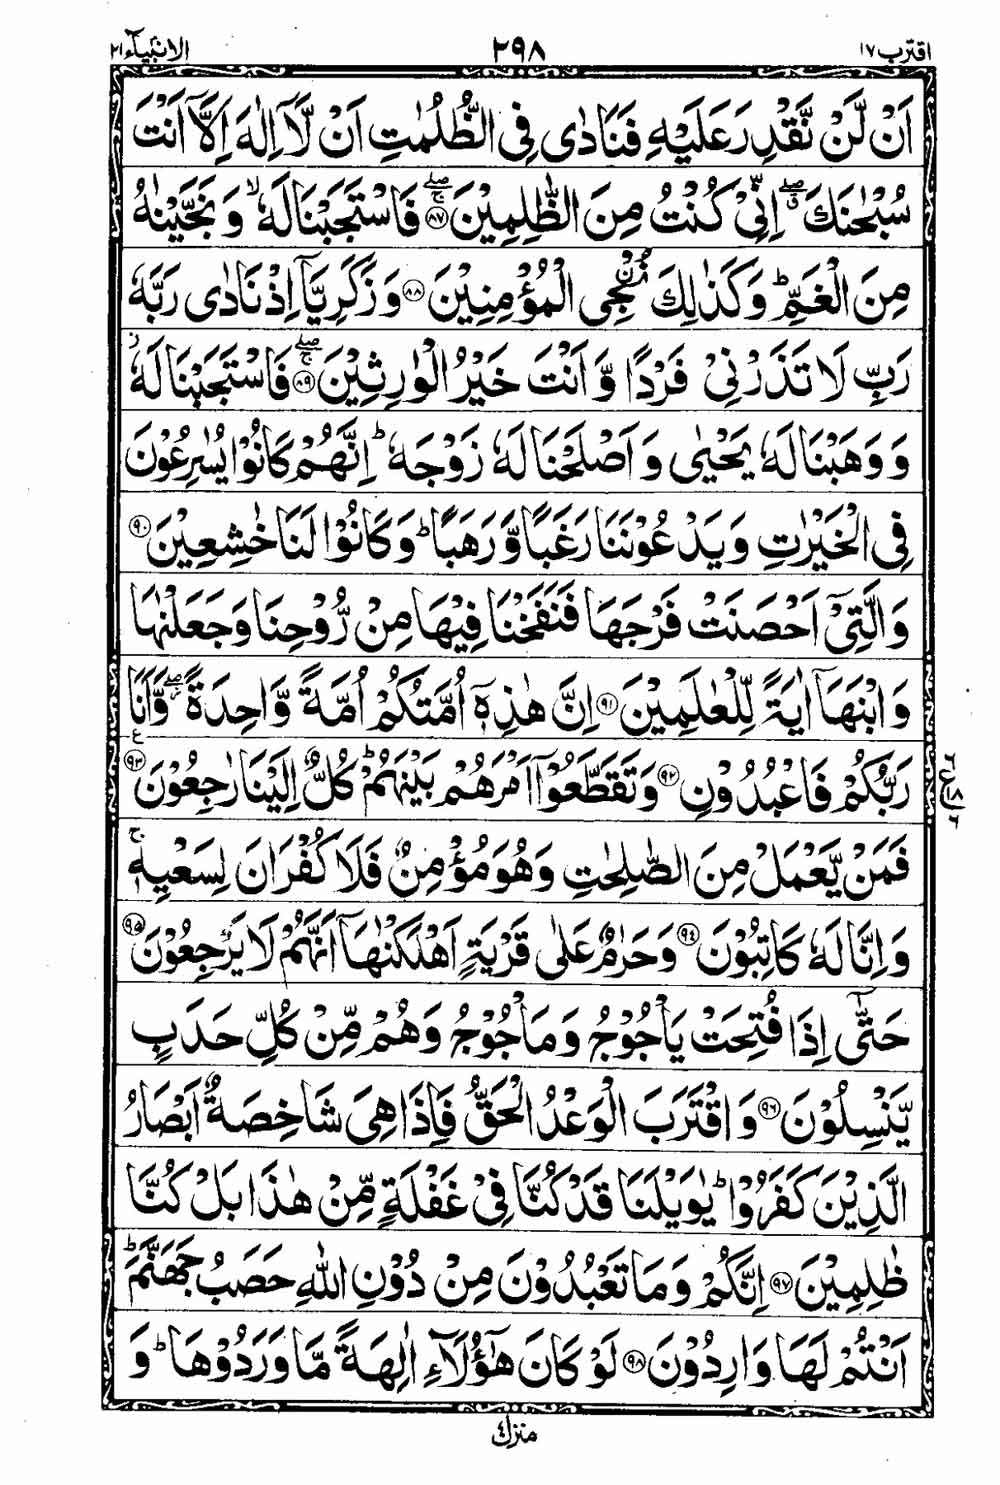 اقترب ١٧ ٢٩٨ الانبیآء ٢١
اَنۡ لَّنۡ نَّقۡدِرَ عَلَیۡهِ فَنَادٰی فِی الظُّلُمٰتِ اَنۡ لَّاۤ اِلٰهَ اِلَّاۤ اَنۡتَ
سُبۡحٰنَكَ ۖۗ اِنِّیۡ کُنۡتُ مِنَ الظّٰلِمِیۡنَ ﴿٨٧﴾ۚۖ فَاسۡتَجَبۡنَا لَهٗ ۙ وَ نَجَّیۡنٰهُ
مِنَ الۡغَمِّ ؕ وَ کَذٰلِكَ نُـنۡجِی الۡمُؤۡمِنِیۡنَ ﴿٨٨﴾ وَ زَکَرِیَّاۤ اِذۡ نَادٰی رَبَّهٗ
رَبِّ لَا تَذَرۡنِیۡ فَرۡدًا وَّ اَنۡتَ خَیۡرُ الۡوٰرِثِیۡنَ ﴿٨٩﴾ۚۖ فَاسۡتَجَبۡنَا لَهٗ ۫
وَ وَهَبۡنَا لَهٗ یَحۡیٰی وَ اَصۡلَحۡنَا لَهٗ زَوۡجَهٗ ؕ اِنَّهُمۡ کَانُوۡا یُسٰرِعُوۡنَ
فِی الۡخَیۡرٰتِ وَ یَدۡعُوۡنَنَا رَغَبًا وَّ رَهَبًا ؕ وَ کَانُوۡا لَنَا خٰشِعِیۡنَ ﴿٩٠﴾
وَ الَّتِیۡۤ اَحۡصَنَتۡ فَرۡجَهَا فَنَفَخۡنَا فِیۡهَا مِنۡ رُّوۡحِنَا وَ جَعَلۡنٰهَا
وَ ابۡنَهَاۤ اٰیَةً لِّلۡعٰلَمِیۡنَ ﴿٩١﴾ اِنَّ هٰذِهٖۤ اُمَّتُکُمۡ اُمَّةً وَّاحِدَةً ۫ۖ وَّ اَنَا
رَبُّکُمۡ فَاعۡبُدُوۡنِ ﴿٩٢﴾ وَ تَقَطَّعُوۡۤا اَمۡرَهُمۡ بَیۡنَهُمۡ ؕ کُلٌّ اِلَیۡنَا رٰجِعُوۡنَ ﴿٩٣﴾ ع
فَمَنۡ یَّعۡمَلۡ مِنَ الصّٰلِحٰتِ وَ هُوَ مُؤۡمِنٌ فَلَا کُفۡرَانَ لِسَعۡیِهٖ ۚ
وَ اِنَّا لَهٗ کَاتِبُوۡنَ ﴿٩٤﴾ وَ حَرٰمٌ عَلٰی قَرۡیَةٍ اَهۡلَکۡنٰهَاۤ اَنَّهُمۡ لَا یَرۡجِعُوۡنَ ﴿٩٥﴾
حَتّٰۤی اِذَا فُتِحَتۡ یَاۡجُوۡجُ وَ مَاۡجُوۡجُ وَ هُمۡ مِّنۡ کُلِّ حَدَبٍ
یَّنۡسِلُوۡنَ ﴿٩٦﴾ وَ اقۡتَرَبَ الۡوَعۡدُ الۡحَقُّ فَاِذَا هِیَ شَاخِصَةٌ اَبۡصَارُ
الَّذِیۡنَ کَفَرُوۡا ؕ یٰوَیۡلَنَا قَدۡ کُنَّا فِیۡ غَفۡلَةٍ مِّنۡ هٰذَا بَلۡ کُنَّا
ظٰلِمِیۡنَ ﴿٩٧﴾ اِنَّکُمۡ وَ مَا تَعۡبُدُوۡنَ مِنۡ دُوۡنِ اللّٰهِ حَصَبُ جَهَنَّمَ ؕ
اَنۡتُمۡ لَهَا وٰرِدُوۡنَ ﴿٩٨﴾ لَوۡ کَانَ هٰۤؤُلَآءِ اٰلِهَةً مَّا وَرَدُوۡهَا ؕ وَ
منزل ٤